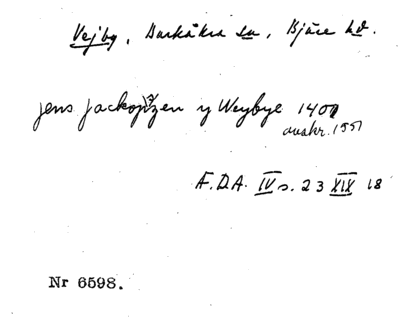 Vejby, Barkåkra sn, Bjäre hd.
jens jackopzen y Weybye 1407
avskr. 1551
Æ.D.A. IV s. 23 XIX 18
Nr 6598.